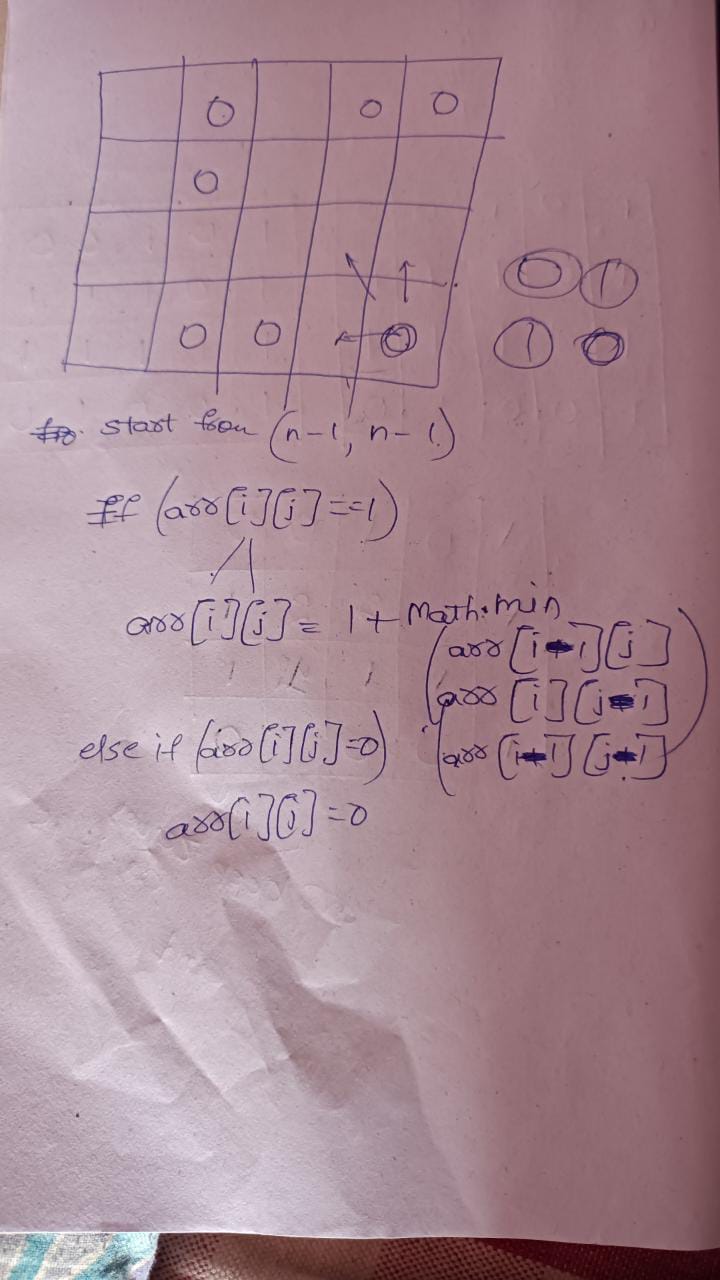 O O O
O
O O O
O 1
1 O
start from (n-1, n-1)
If (arr[i][j]==1)
arr[i][j] = 1 + Math.min
(arr[i-1][j]
arr[i][j-1]
arr[i-1][j-1])
else if (arr[i][j]=0)
arr[i][j]=0